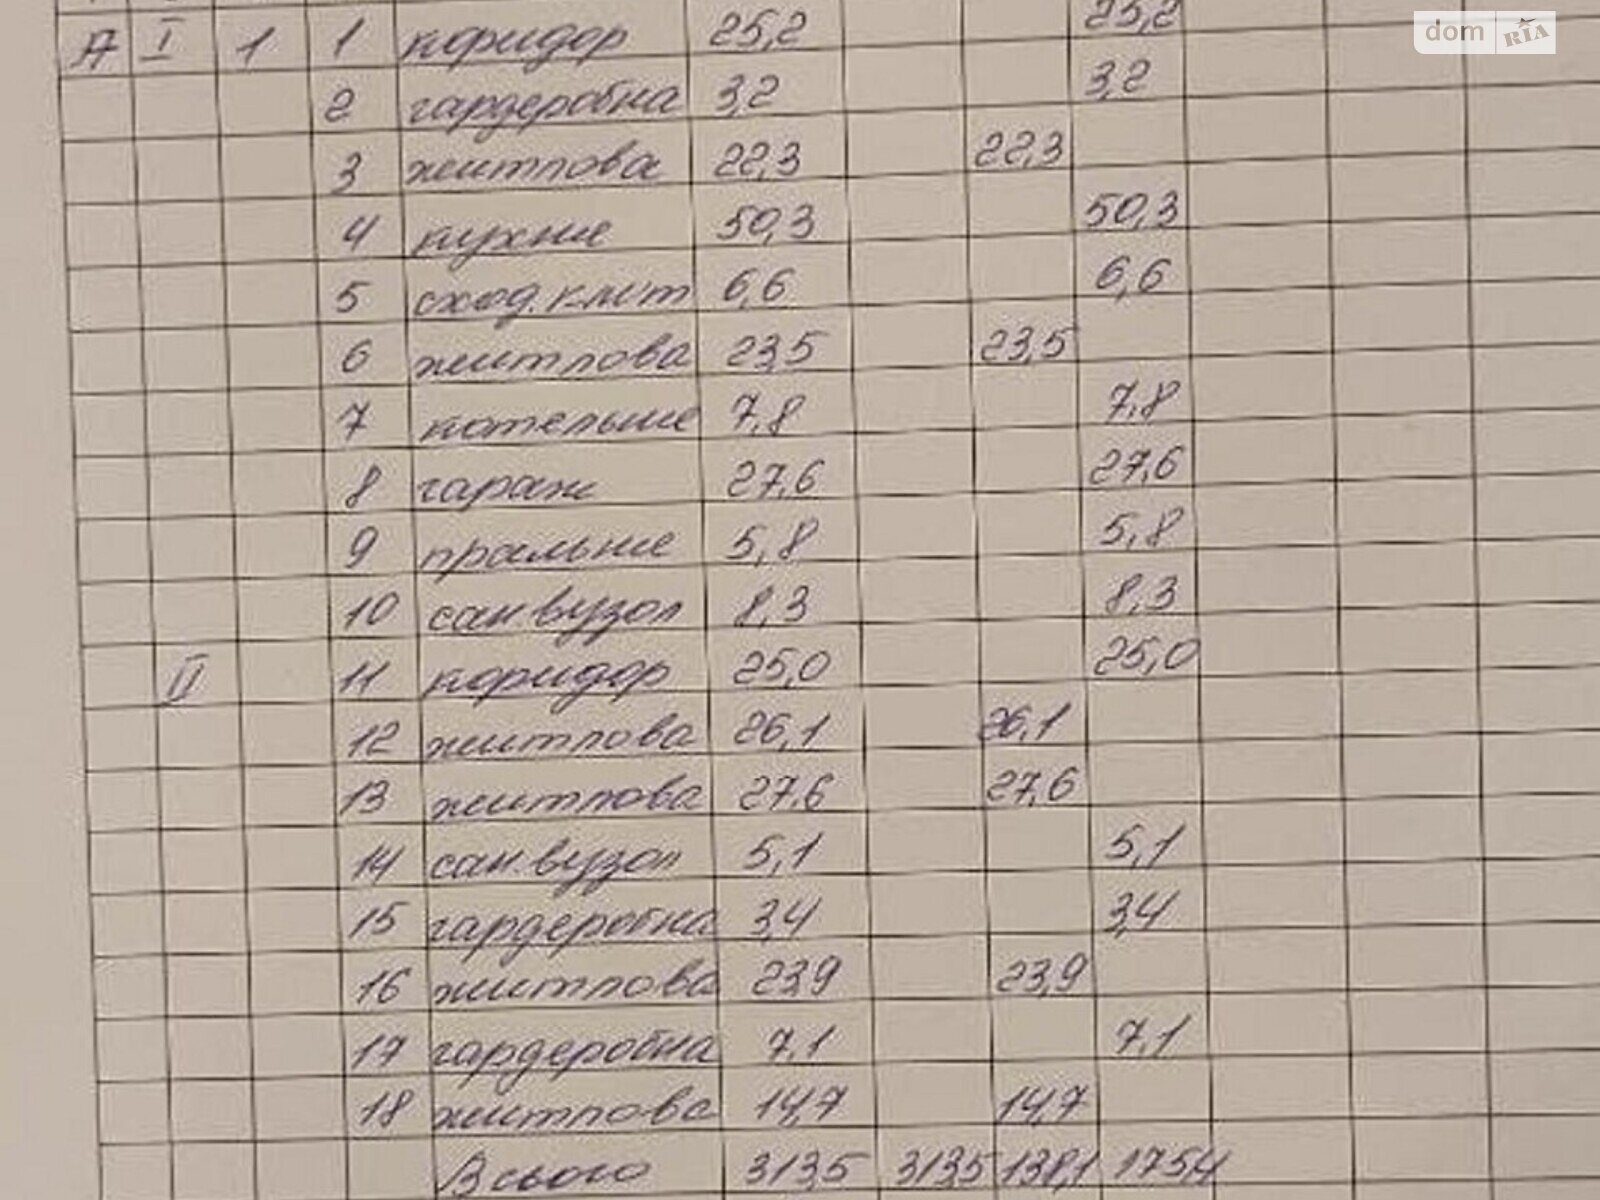 dom RIA
А I 1 1 коридор 25,2 25,2
2 гардеробна 3,2 3,2
3 житлова 22,3 22,3
4 кухня 50,3 50,3
5 сход. кліт 6,6 6,6
6 житлова 23,5 23,5
7 котельня 7,8 7,8
8 гараж 27,6 27,6
9 пральня 5,8 5,8
10 сан.вузол 8,3 8,3
II 11 коридор 25,0 25,0
12 житлова 26,1 26,1
13 житлова 27,6 27,6
14 сан.вузол 5,1 5,1
15 гардеробна 3,4 3,4
16 житлова 23,9 23,9
17 гардеробна 7,1 7,1
18 житлова 14,7 14,7
Всього 313,5 313,5 138,1 175,4